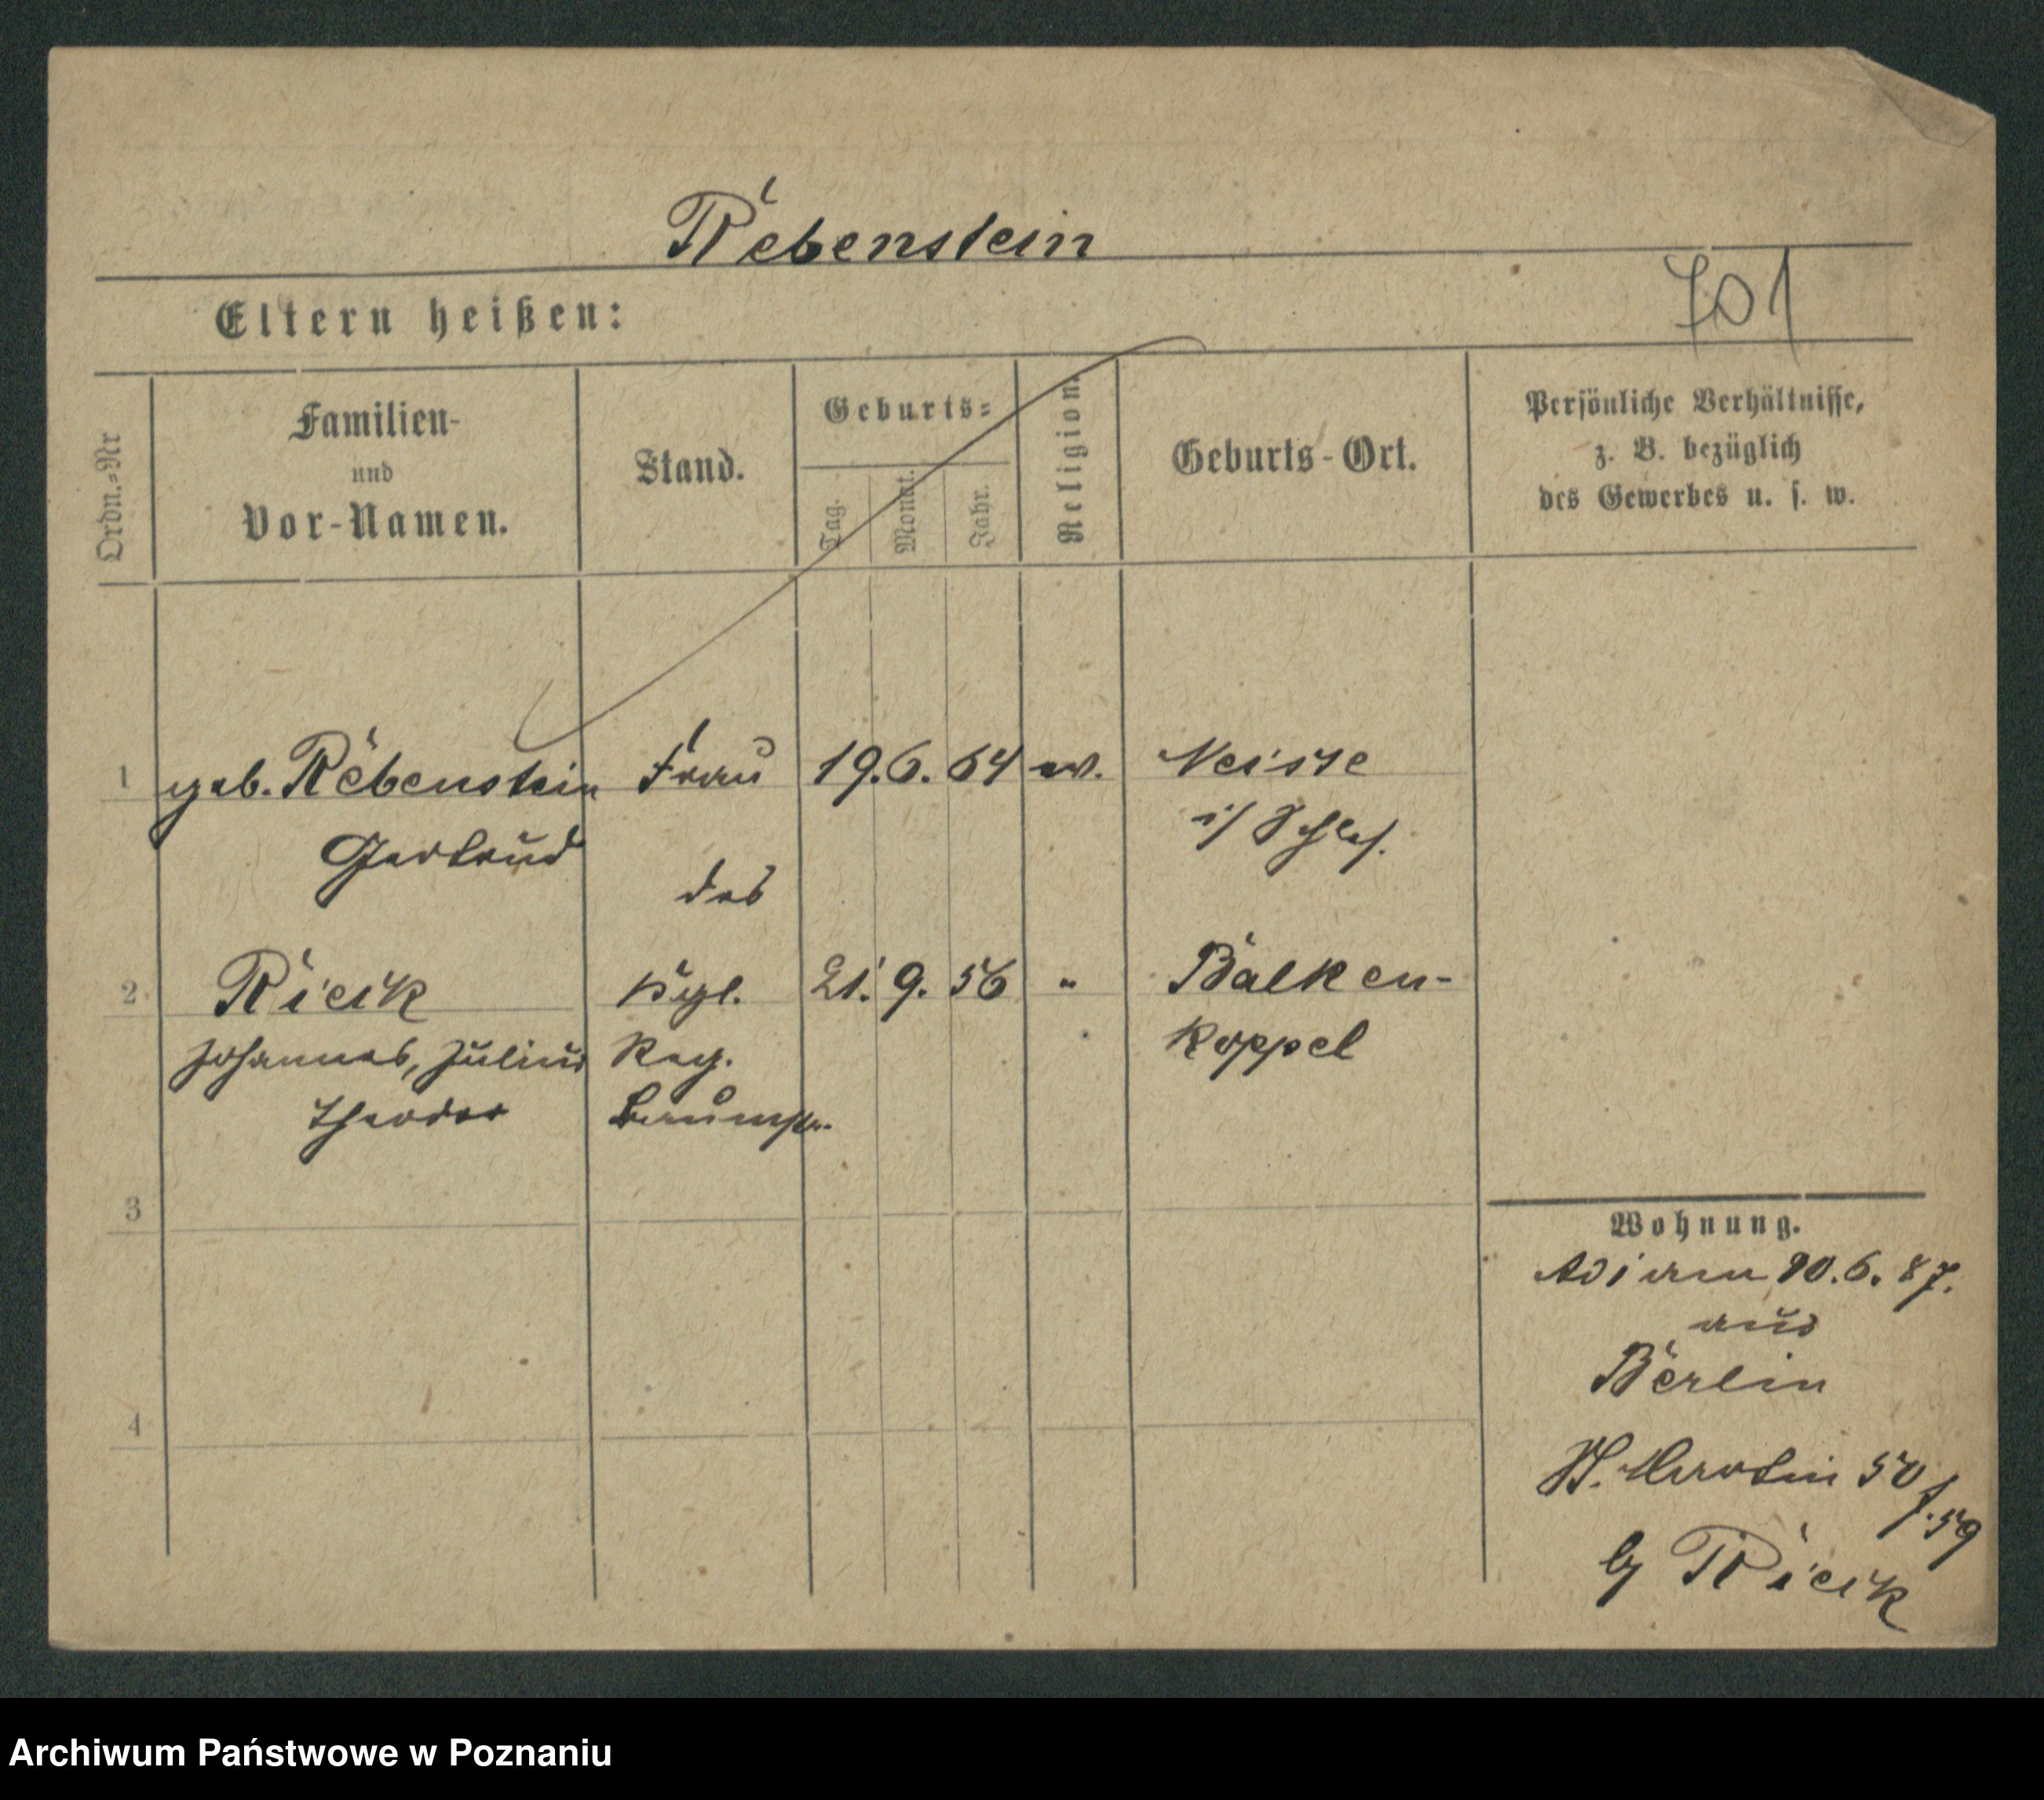 Rebenstein
701
Eltern heißen:
Ordn.=Nr
Familien-
und
Vor-Namen.
Stand.
Geburts=
Tag.
Monat.
Jahr.
Religion.
Geburts-Ort.
Persönliche Verhältnisse,
z. B. bezüglich
des Gewerbes u. s. w.
1 geb. Rebenstein Frau 19. 6. 64 ev. Neisse
Gertrud i/ Schles.
des
2 Rieck Kgl. 21. 9. 56 " Balken-
Johannes, Julius Reg. Koppel
Theodor Baumstr.
3
Wohnung.
am 20. 6. 87.
aus
Berlin
4
St. Martin 50
f. 59
b/ Rieck
Archiwum Państwowe w Poznaniu